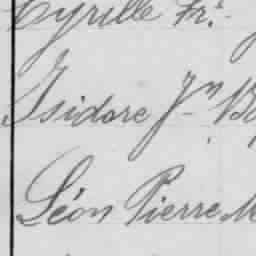 Cyrille Fr.
Isidore Jn B
Léon Pierre M